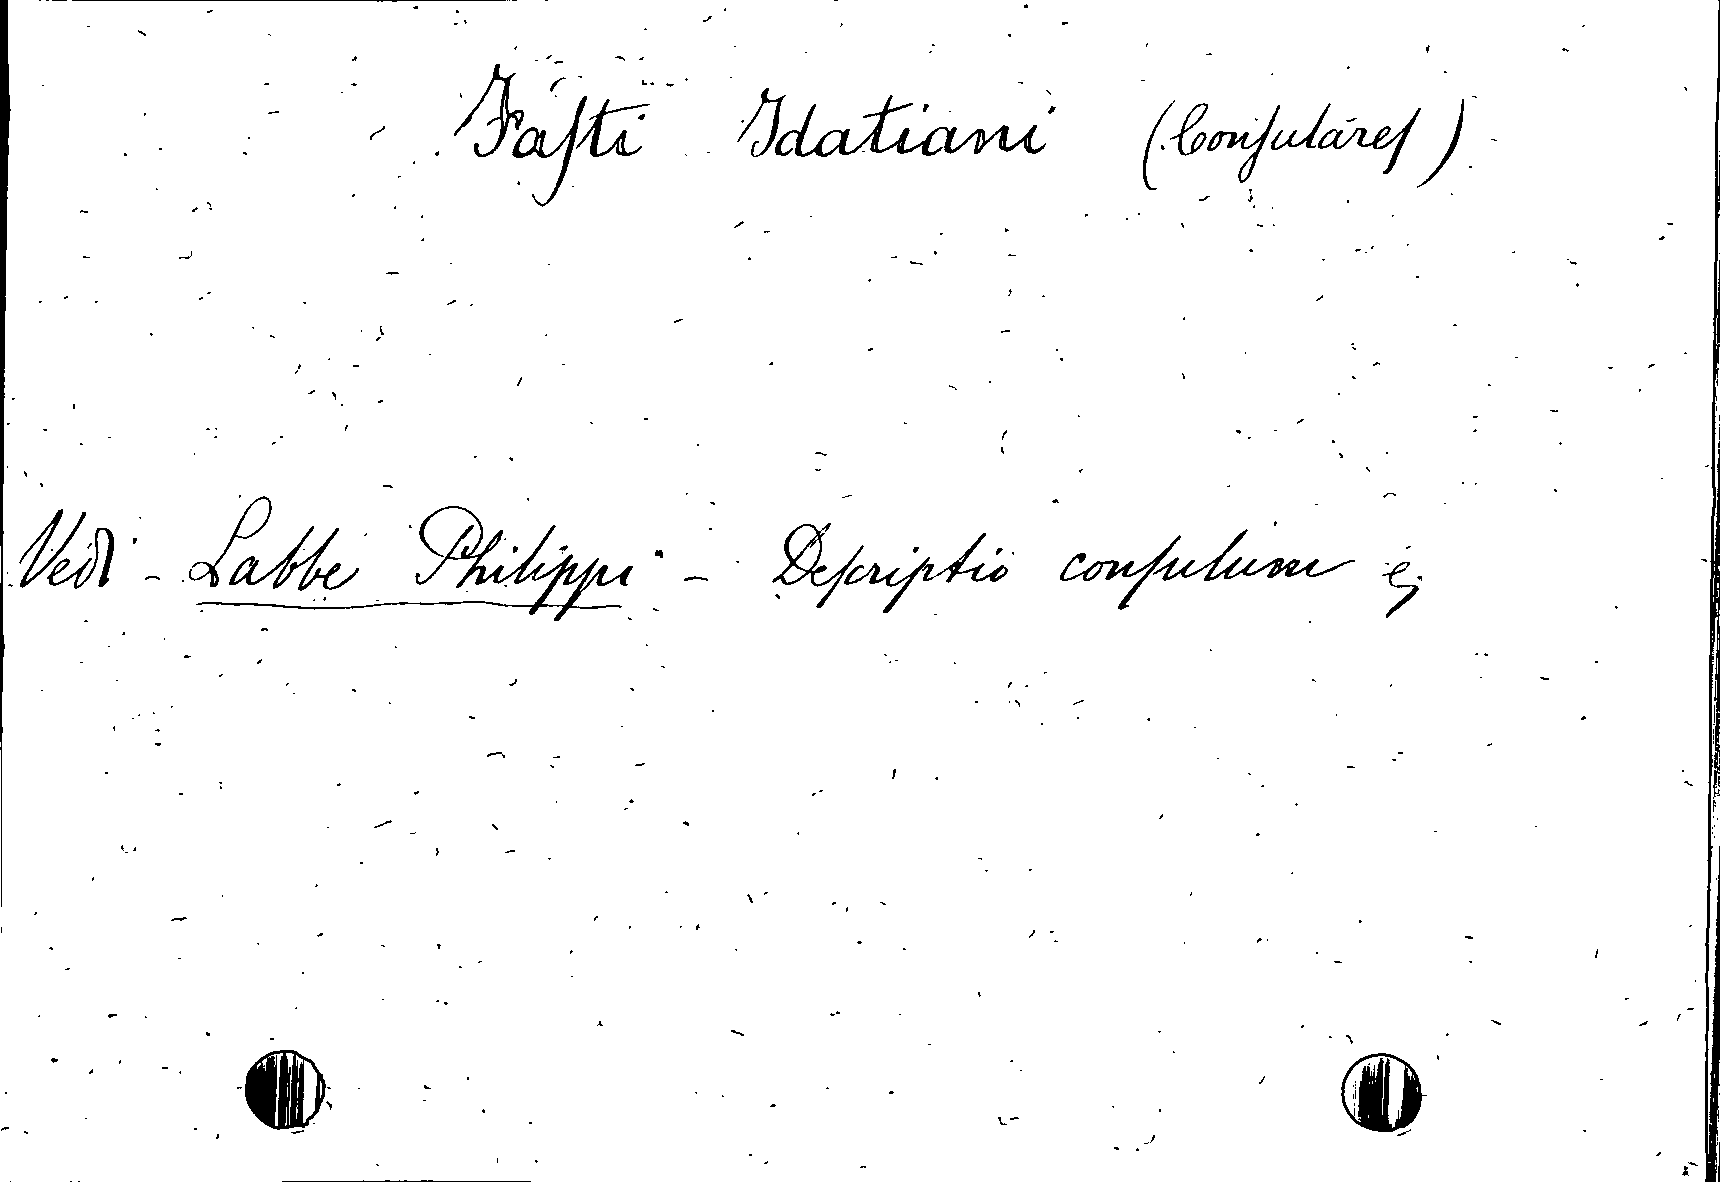 Fasti Idatiani (Consulares)
Vedi - Labbe Philippi - Descriptio consulum